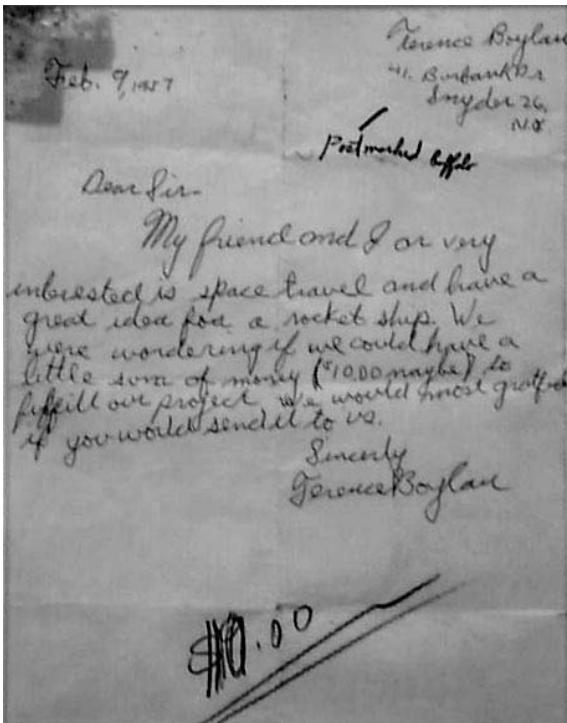 Terence Boylan
41. Burbank Dr
Snyder 26,
N.Y.
Feb. 9, 1957
Postmarked Buffalo
Dear Sir-
My friend and I ar very
interested is space travel and have a
great idea for a rocket ship. We
were wordering if we could have a
little sum of money ($10.00 maybe) to
fulfill our project. We would most
if you would send it to us.
Sincerly
Terence Boylan
$10.00